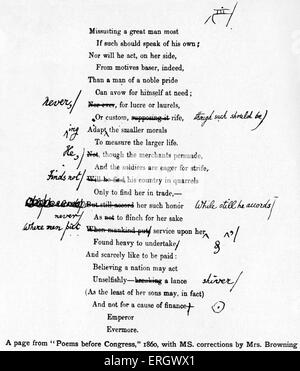 III
Missuiting a great man most
If such should speak of his own;
Nor will he act, on her side,
From motives baser, indeed,
Than a man of a noble pride
Can avow for himself at need;
never, / Nor ever, for lucre or laurels,
Or custom, supposing it rife, though such should be /
ing Adapt the smaller morals
To measure the larger life.
He, / Not, though the merchants persuade,
And the soldiers are eager for strife,
Finds not / Will he find his country in quarrels
Only to find her in trade,—
But still accord her such honor While still he accords /
never / As not to flinch for her sake
Where men put When mankind put service upon her,
Found heavy to undertake
And scarcely like to be paid:
Believing a nation may act
Unselfishly—breaking a lance shiver /
(As the least of her sons may, in fact)
And not for a cause of finance.
Emperor
Evermore.
A page from "Poems before Congress," 1860, with MS. corrections by Mrs. Browning
alamy
Image ID: ERGWX1
www.alamy.com